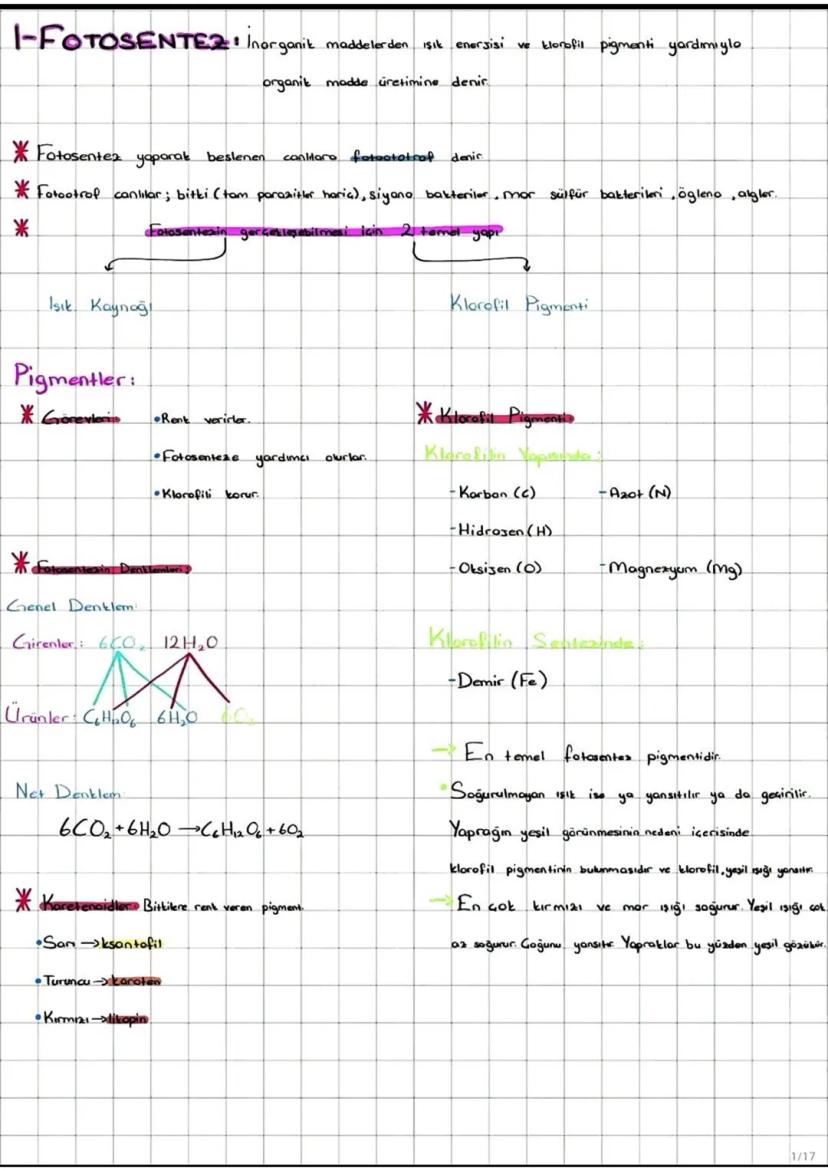 1-FOTOSENTEZ: İnorganik maddelerden ışık enerjisi ve klorofil pigmenti yardımıyla
organik madde üretimine denir.
* Fotosentez yaparak beslenen canlılara fotoototrof denir
* Fotootrof canlılar; bitki (tam parazitler hariç), siyano bakteriler, mor sülfür bakterileri, öglena, algler.
* Fotosentezin gerçekleşebilmesi için 2 temel yapı
Işık Kaynağı
Klorofil Pigmenti
Pigmentler:
* Görevleri:
• Renk verirler.
• Fotosenteze yardımcı olurlar.
• Klorofili korur.
* Fotosentezin Denklemleri:
Genel Denklem:
Girenler: 6CO₂ 12H₂O
Ürünler: C₆H₁₂O₆ 6H₂O 6O₂
Net Denklem:
6CO₂+6H₂O →C₆H₁₂O₆+6O₂
* Karetenoidler: Bitkilere renk veren pigment.
• Sarı → ksantofil
• Turuncu → karoten
• Kırmızı → likopin
* Klorofil Pigmenti:
Klorofilin Yapısında:
- Karbon (C) - Azot (N)
- Hidrojen (H)
- Oksijen (O) - Magnezyum (Mg)
Klorofilin Sentezinde:
- Demir (Fe)
→ En temel fotosentez pigmentidir.
• Soğurulmayan ışık ise ya yansıtılır ya da geçirilir.
Yaprağın yeşil görünmesinin nedeni içerisinde
klorofil pigmentinin bulunmasıdır ve klorofil, yeşil ışığı yansıtır.
→ En çok kırmızı ve mor ışığı soğurur. Yeşil ışığı çok
az soğurur. Çoğunu yansıtır. Yapraklar bu yüzden yeşil gözükür.
1/17